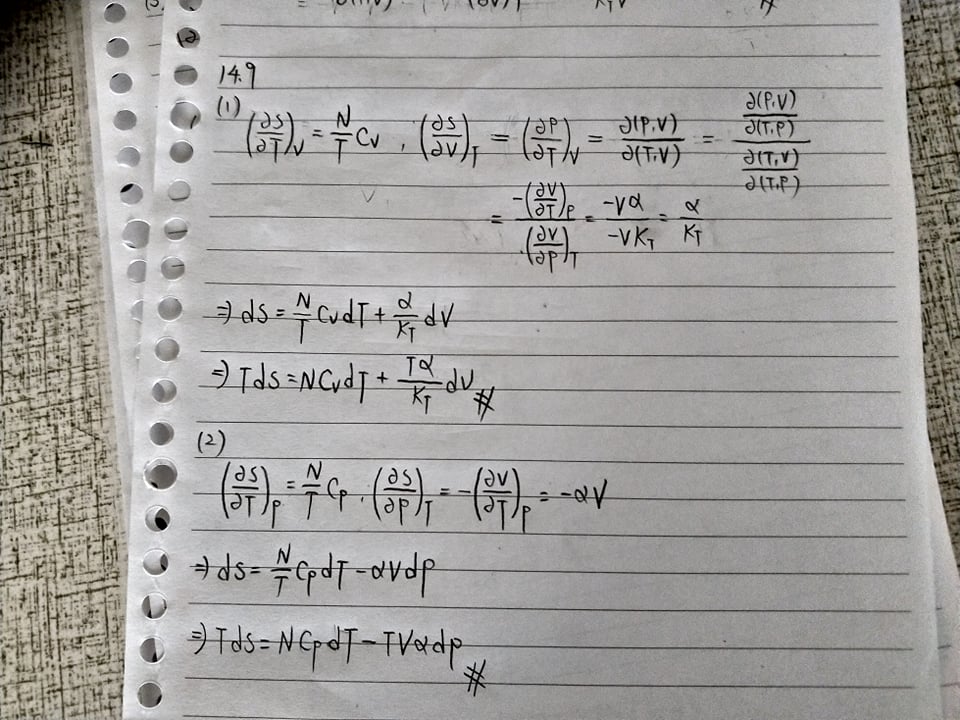 14.9
(1) (∂S/∂T)_V = N/T C_V , (∂S/∂V)_T = (∂P/∂T)_V = ∂(P,V)/∂(T,V) = (∂(P,V)/∂(T,P))/(∂(T,V)/∂(T,P))
= -(∂V/∂T)_P/(∂V/∂P)_T = -Vα/-VK_T = α/K_T
⇒ dS = N/T C_V dT + α/K_T dV
⇒ TdS = NC_V dT + Tα/K_T dV #
(2)
(∂S/∂T)_P = N/T C_P , (∂S/∂P)_T = -(∂V/∂T)_P = -αV
⇒ dS = N/T C_P dT - αVdP
⇒ TdS = NC_P dT - TVαdP #